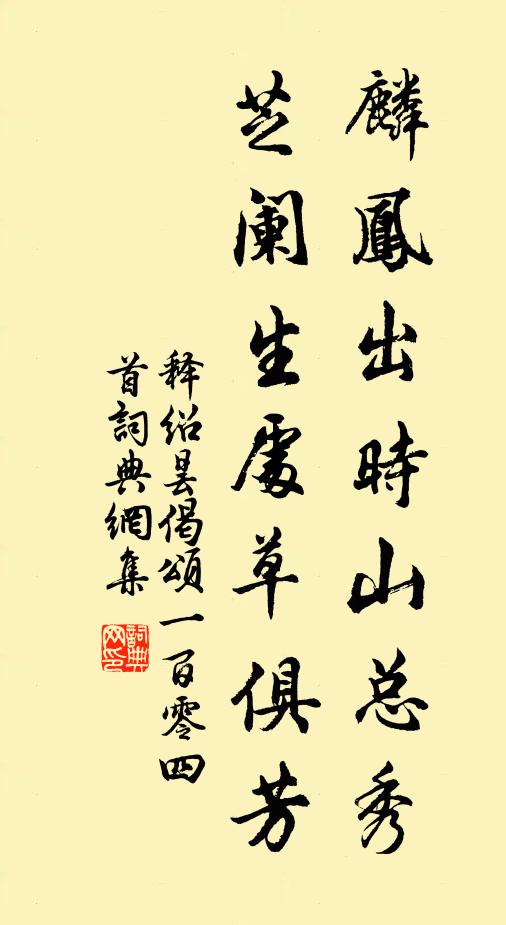 麟鳳出時山总秀
芝阑生處草俱芳
释绍昙偈頌一百零四
首詞典網集
詞典
网印